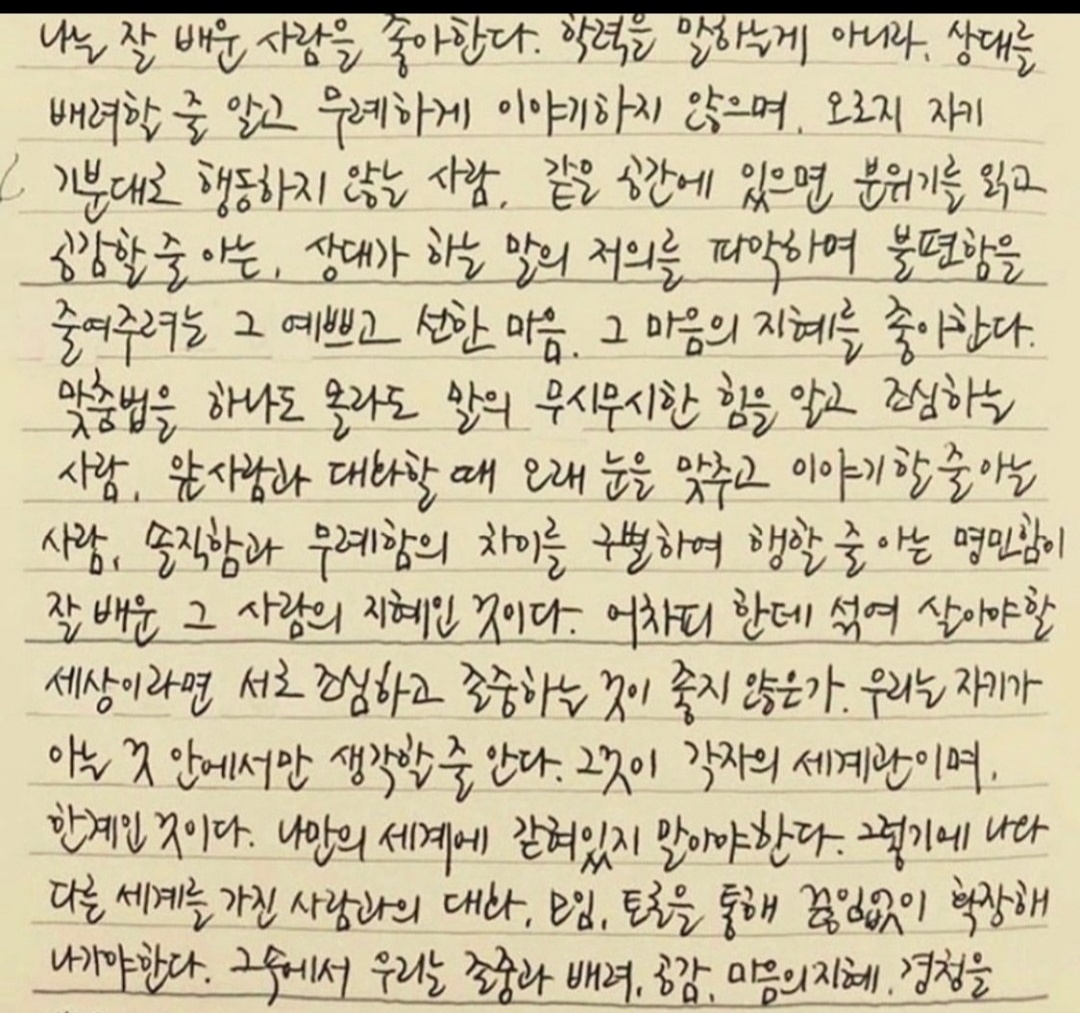 나는 잘 배운 사람을 좋아한다. 학력을 말하는게 아니라, 상대를
배려할 줄 알고 무례하게 이야기하지 않으며, 오로지 자기
기분대로 행동하지 않는 사람. 같은 공간에 있으면 분위기를 읽고
공감할 줄 아는, 상대가 하는 말의 저의를 파악하며 불편함을
줄여주려는 그 예쁘고 선한 마음. 그 마음의 지혜를 좋아한다.
맞춤법을 하나도 몰라도 말의 무시무시한 힘을 알고 조심하는
사람, 윗사람과 대화할 때 오래 눈을 맞추고 이야기할 줄 아는
사람, 솔직함과 무례함의 차이를 구별하여 행할 줄 아는 명민함이
잘 배운 그 사람의 지혜인 것이다. 어차피 한데 섞여 살아야할
세상이라면 서로 조심하고 존중하는 것이 좋지 않은가. 우리는 자기가
아는 것 안에서만 생각할 줄 안다. 그것이 각자의 세계관이며,
한계인 것이다. 나만의 세계에 갇혀있지 말아야한다. 그렇기에 나와
다른 세계를 가진 사람과의 대화, 모임, 토론을 통해 끊임없이 확장해
나가야한다. 그속에서 우리는 존중과 배려, 공감, 마음의 지혜, 경청을